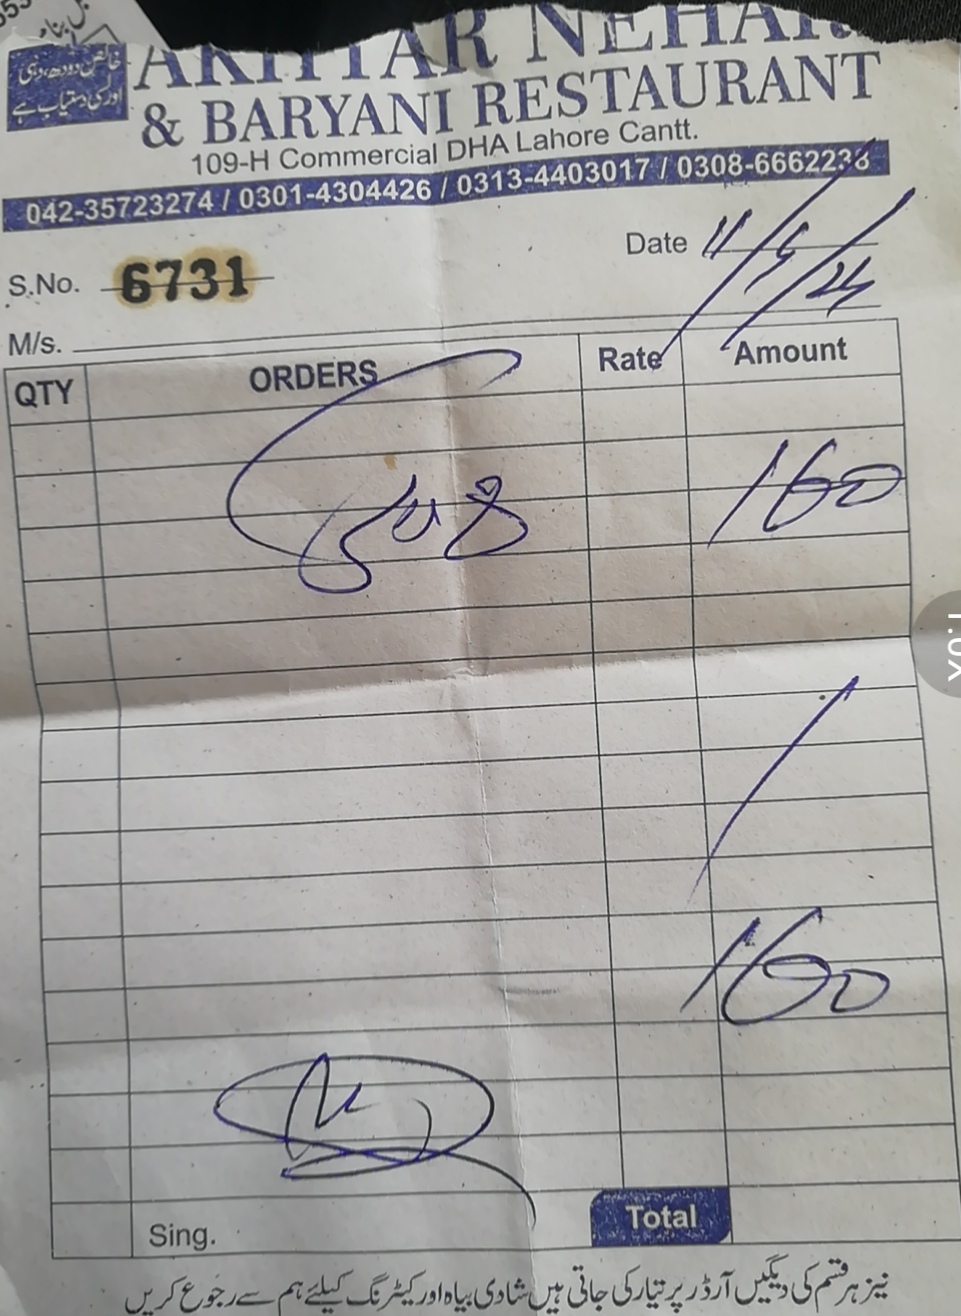 خالص دودھ دہی
اور لسی دستیاب ہے
AKHTAR NEHARI
& BARYANI RESTAURANT
109-H Commercial DHA Lahore Cantt.
042-35723274 / 0301-4304426 / 0313-4403017 / 0308-6662238
Date 11/5/24
S.No. 6731
M/s.
QTY ORDERS Rate Amount
160
160
Sing. Total
نیز ہر قسم کی دیگیں آرڈر پر تیار کی جاتی ہیں شادی بیاہ اور کیٹرنگ کیلئے ہم سے رجوع کریں